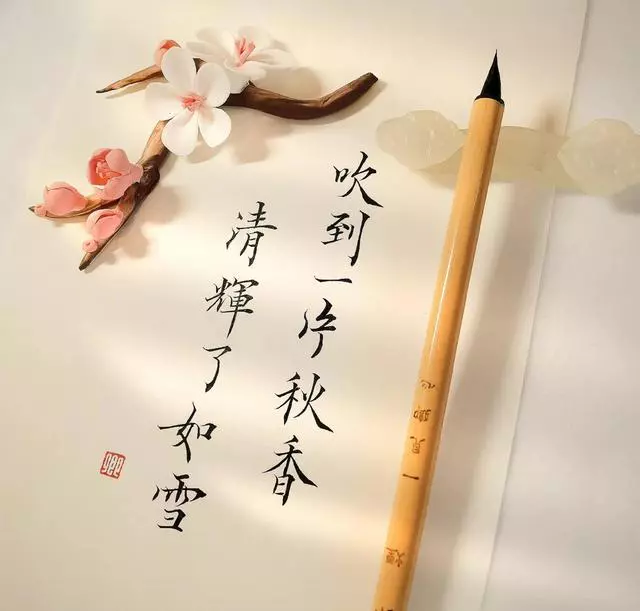 吹到一片秋香
清輝了如雪